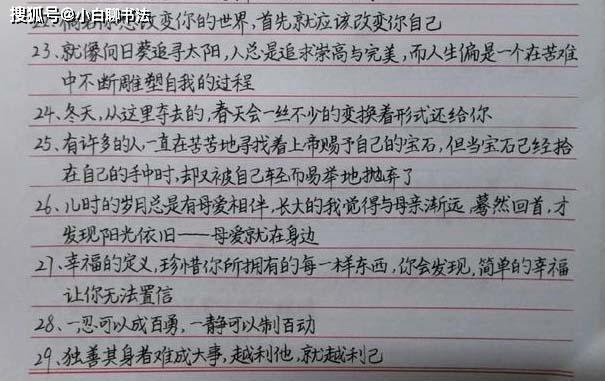 搜狐号@小白聊书法
你想改变你的世界,首先就应该改变你自己
23、就像向日葵追寻太阳,人总是追求崇高与完美,而人生偏是一个在苦难
中不断雕塑自我的过程
24、冬天,从这里夺去的,春天会一丝不少的变换着形式还给你
25、有许多的人一直在苦苦地寻找着上帝赐予自己的宝石,但当宝石已经拾
在自己的手中时,却又被自己轻而易举地抛弃了
26、儿时的岁月总是有母爱相伴,长大的我觉得与母亲渐远,蓦然回首,才
发现阳光依旧——母爱就在身边
27、幸福的定义,珍惜你所拥有的每一样东西,你会发现,简单的幸福
让你无法置信
28、一忍可以成百勇,一静可以制百动
29、独善其身者难成大事,越利他,就越利己